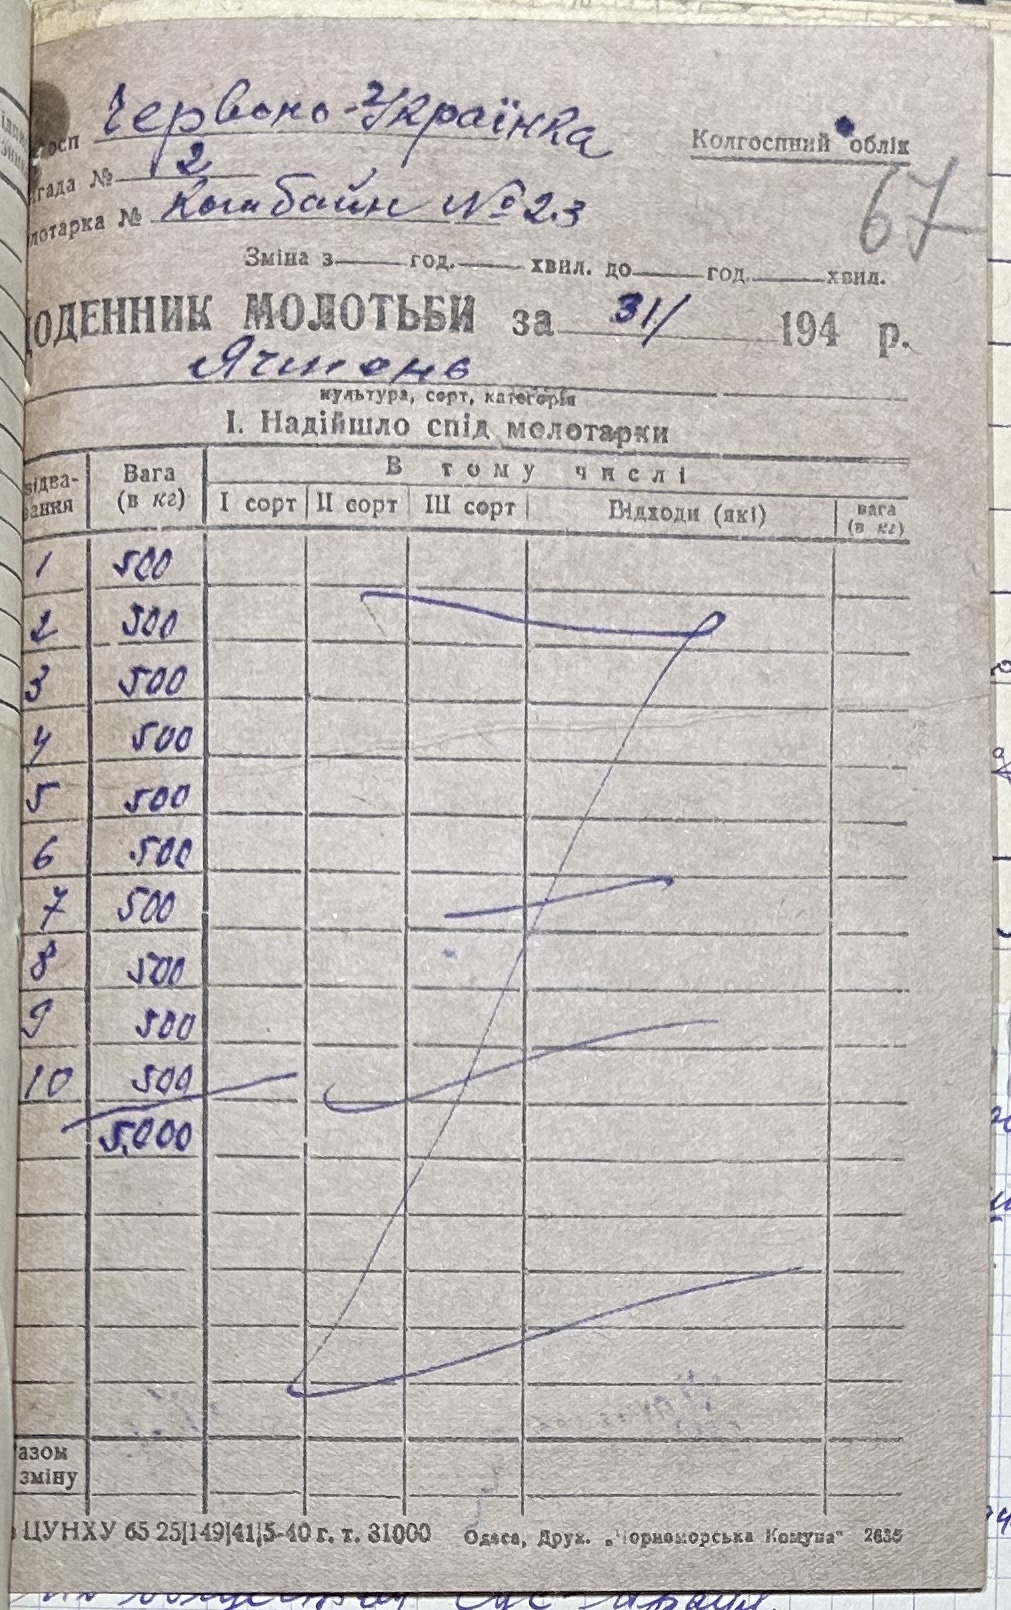 осп Червоно-Українка
Колгоспний облік
гада № 2
67
лотарка № Комбайн № 23
Зміна з год. хвил. до год. хвил.
ОДЕННИК МОЛОТЬБИ за 31/ 194 р.
Ячмень
культура, сорт, категорія
І. Надійшло спід молотарки
відва-
вання
Вага
(в кг)
В тому числі
І сорт ІІ сорт ІІІ сорт Відходи (які) вага
(в кг)
1 500
2 500
3 500
4 500
5 500
6 500
7 500
8 500
9 500
10 500
5.000
азом
зміну
ЦУНХУ 65 25|149|41|5-40 г. т. 31000 Одеса, Друк. „Чорноморська Комуна" 2635